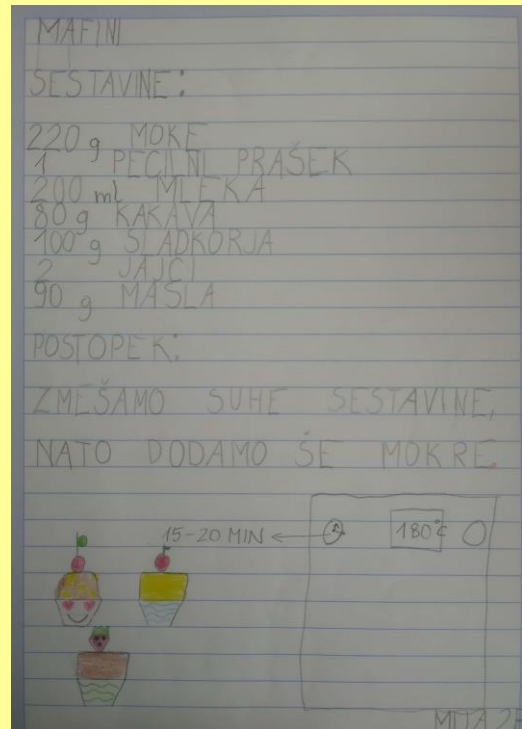 MAFINI
SESTAVINE:
220 g MOKE
1 PECILNI PRAŠEK
200 ml MLEKA
80 g KAKAVA
100 g SLADKORJA
2 JAJCI
90 g MASLA
POSTOPEK:
ZMEŠAMO SUHE SESTAVINE,
NATO DODAMO ŠE MOKRE.
15-20 MIN
180°C